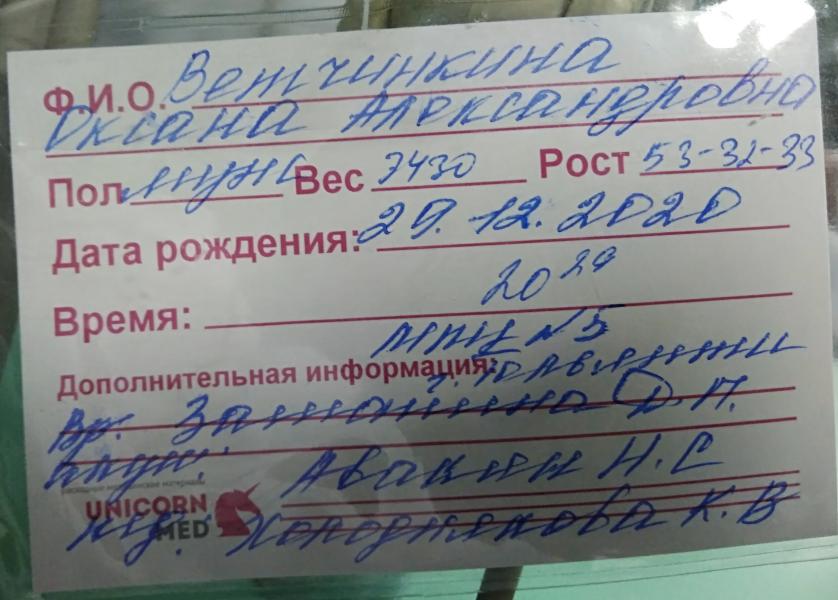 Ф.И.О. Ветчинкина
Оксана Александровна
Пол муж Вес 3430 Рост 53-32-33
Дата рождения: 29.12.2020
Время: 20 29
№5
Дополнительная информация:
Вр. Д.П.
Авакян Н.С
UNICORN
MED
Холоднякова К.В